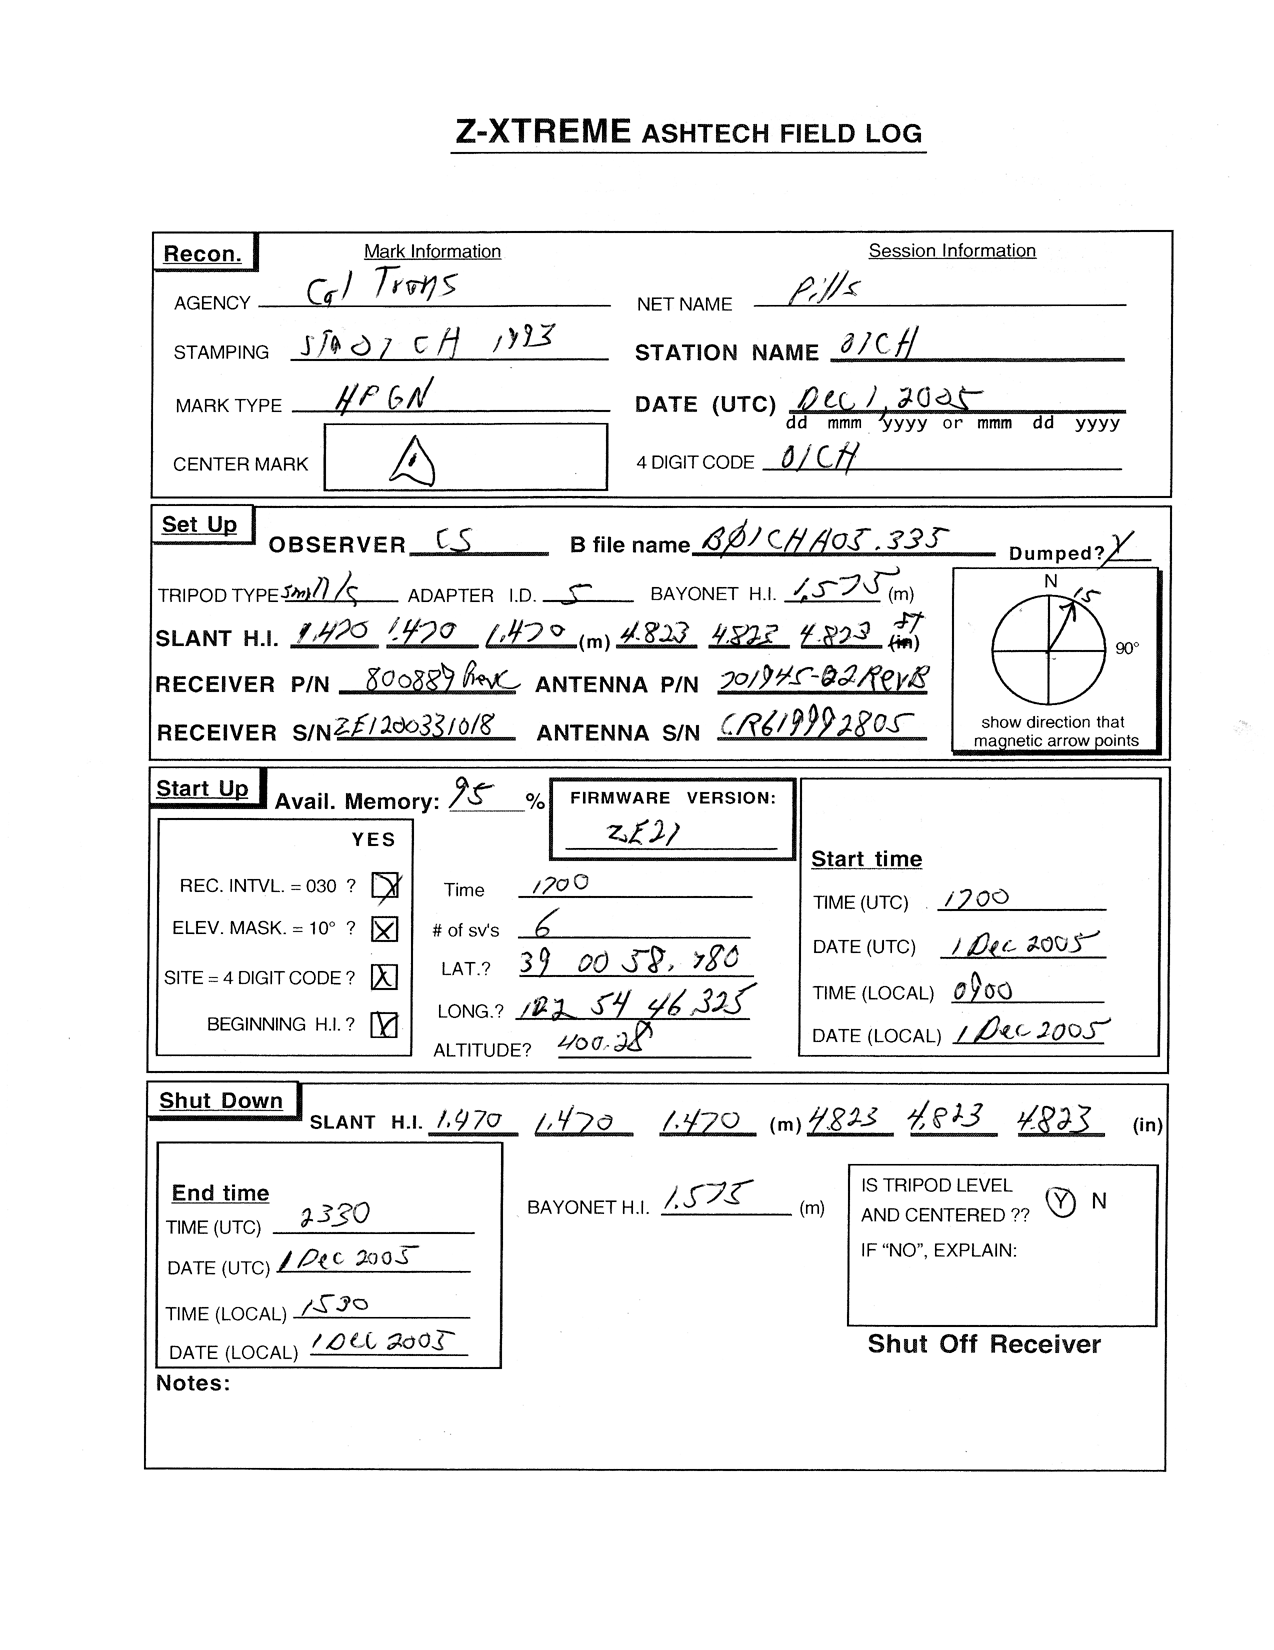 Z-XTREME ASHTECH FIELD LOG
Recon. Mark Information Session Information
AGENCY Cal Trans NET NAME Pills
STAMPING STA 01 CH 1993 STATION NAME 01CH
MARK TYPE HPGN DATE (UTC) Dec 1, 2005
dd mmm yyyy or mmm dd yyyy
CENTER MARK 4 DIGIT CODE 01CH
Set Up OBSERVER CS B file name BØ1CHA05.335 Dumped? Y
TRIPOD TYPE ADAPTER I.D. 5 BAYONET H.I. 1.575 (m) N 15
SLANT H.I. 1.470 1.470 1.470 (m) 4.823 4.823 4.823 ft (in) 90°
RECEIVER P/N 800889 RevC ANTENNA P/N 701945-02RevB
RECEIVER S/N ZE1200331018 ANTENNA S/N CR619992805
show direction that
magnetic arrow points
Start Up Avail. Memory: 95 % FIRMWARE VERSION:
ZE21
YES
Start time
REC. INTVL. = 030 ? Time 1700 TIME (UTC) 1700
ELEV. MASK. = 10° ? # of sv's 6 DATE (UTC) 1 Dec 2005
SITE = 4 DIGIT CODE ? LAT.? 39 00 58. TIME (LOCAL) 0900
BEGINNING H.I. ? LONG.? 122 54 46.325 DATE (LOCAL) 1 Dec 2005
ALTITUDE? 400.28
Shut Down SLANT H.I. 1.470 1.470 1.470 (m) 4.823 4.823 4.823 (in)
End time BAYONET H.I. 1.575 (m) IS TRIPOD LEVEL
AND CENTERED ?? Y N
TIME (UTC) 2330 IF “NO”, EXPLAIN:
DATE (UTC) 1 Dec 2005
TIME (LOCAL) 1530
DATE (LOCAL) 1 Dec 2005 Shut Off Receiver
Notes: